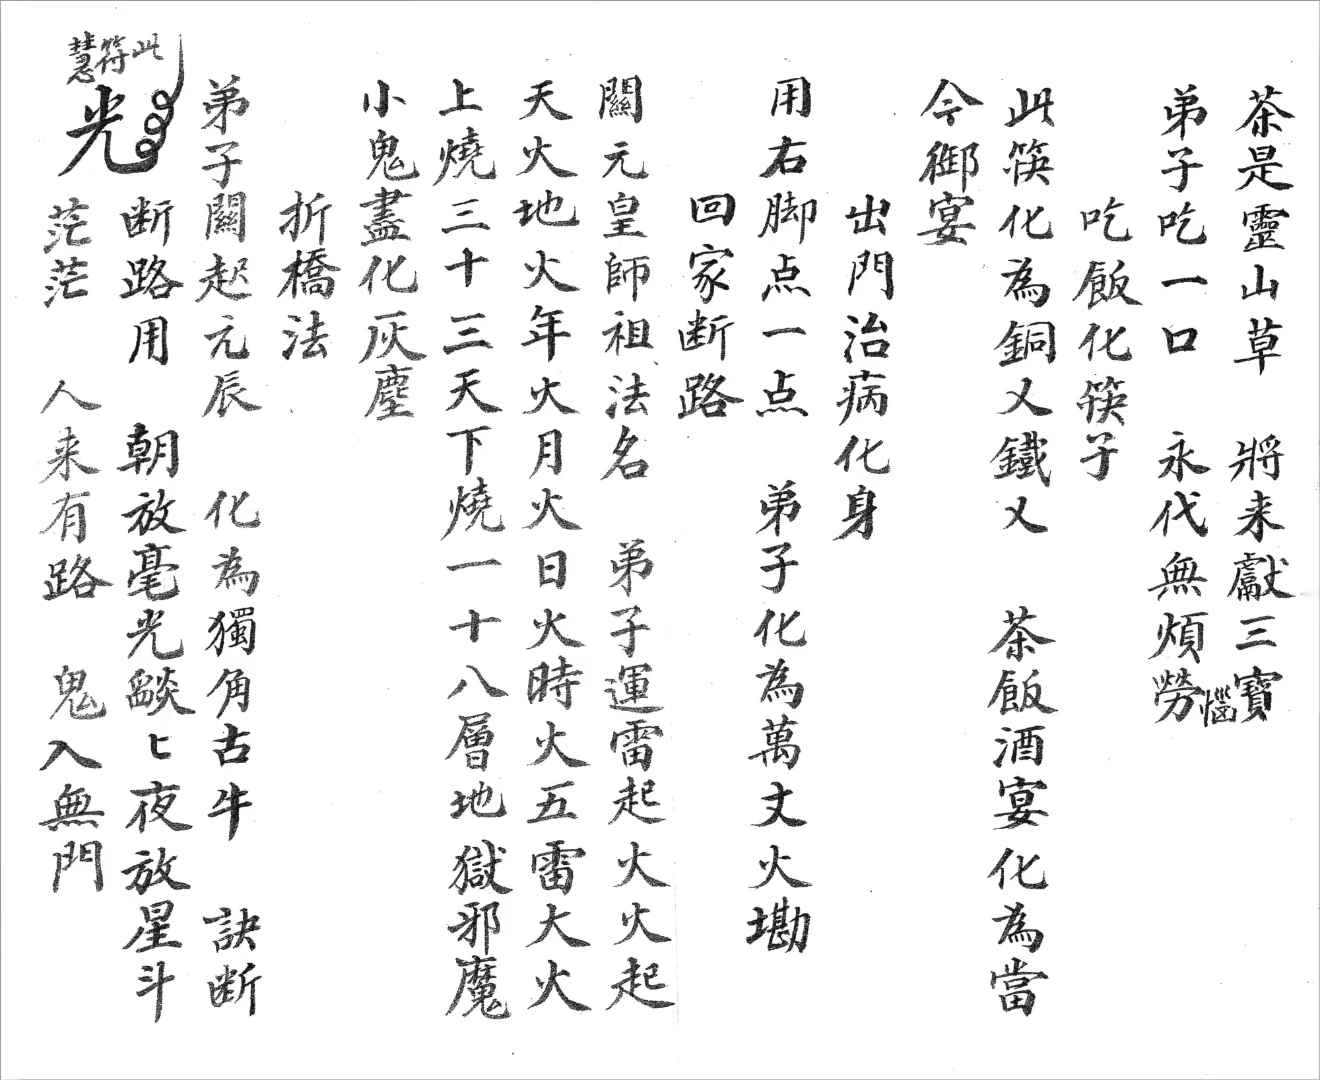 茶是靈山草　將来獻三寶
弟子吃一口　永代無煩勞惱
吃飯化筷子
此筷化為銅乂鐵乂　茶飯酒宴化為當
今御宴
出門治病化身
用右脚点一点　弟子化為萬丈火墈
回家断路
關元皇師祖法名　弟子運雷起火火起
天火地火年火月火日火時火五雷大火
上燒三十三天下燒一十八層地獄邪魔
小鬼盡化灰塵
折橋法
弟子關起元辰　化為獨角古牛　訣断
断路用　朝放毫光燄匕夜放星斗
此符慧光
茫茫　人来有路　鬼入無門